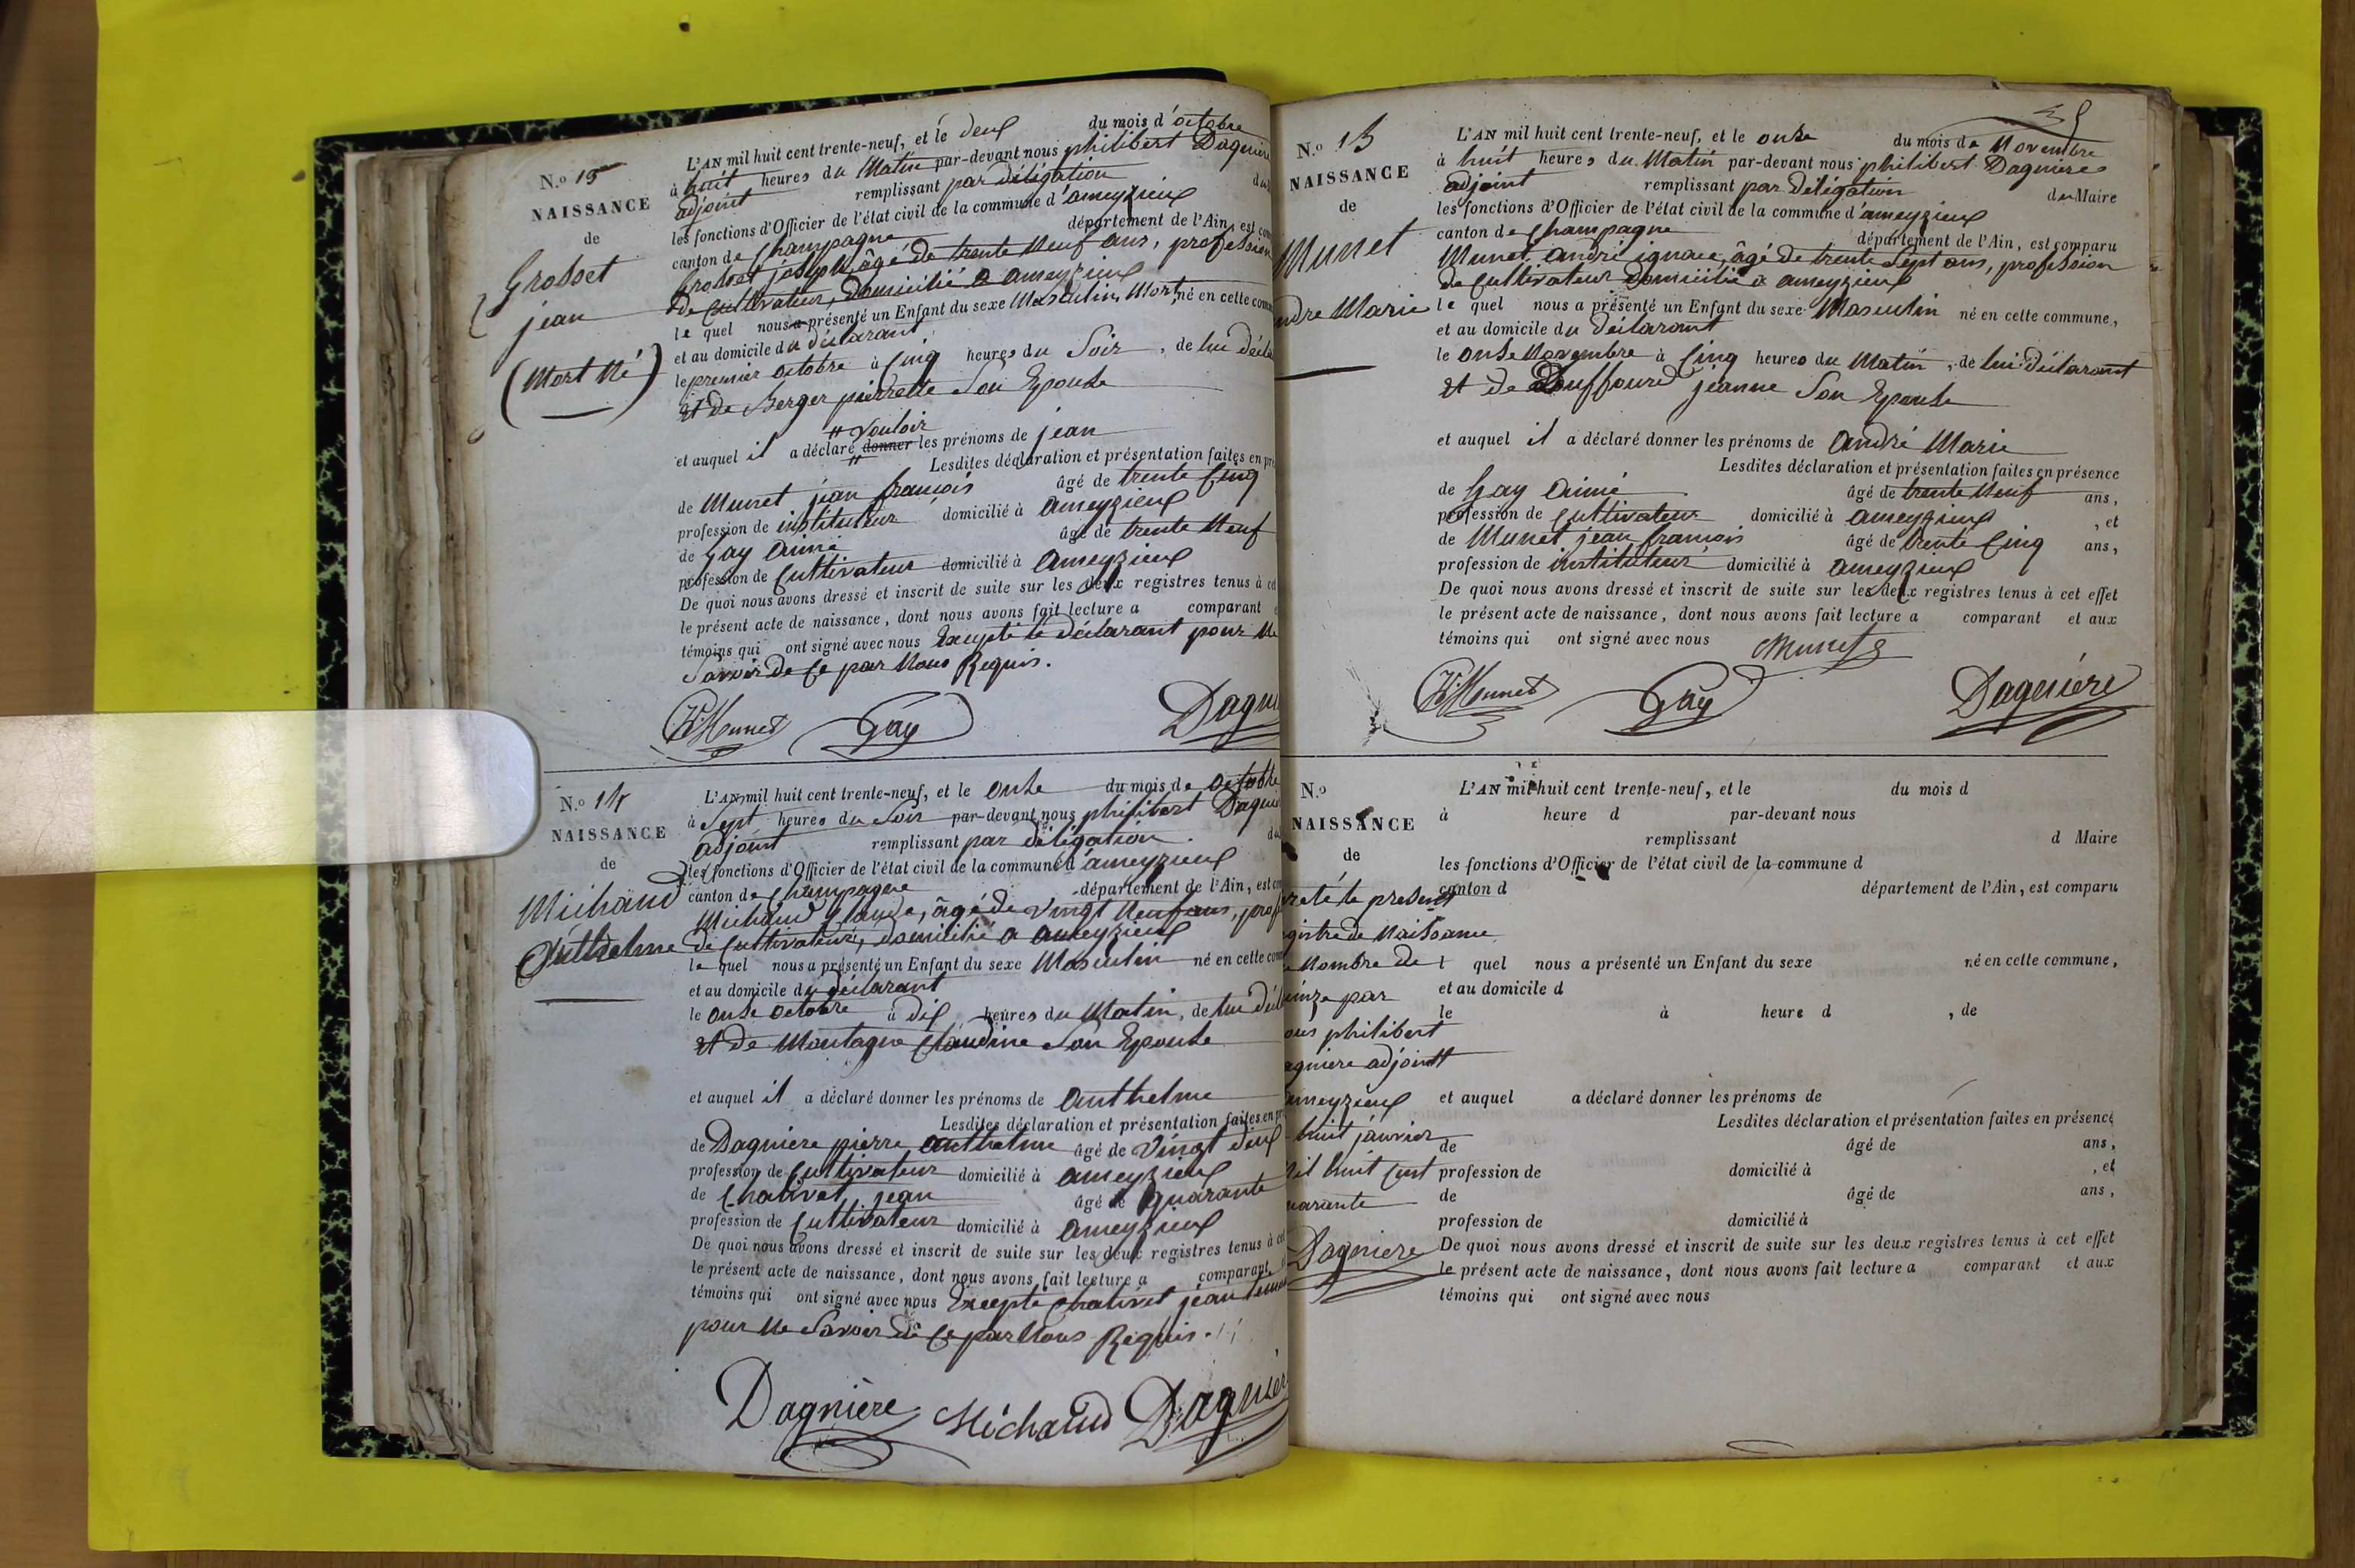 N.o 13
NAISSANCE
de
Grosset
jean
(Mort Né)
L'AN mil huit cent trente-neuf, et le deux du mois d'octobre
à huit heures du Matin par-devant nous philibert Dagniere
adjoint remplissant par délégation du
les fonctions d'Officier de l'état civil de la commune d'ameyzieux
canton de Champagne département de l'Ain, est com
Grosset joseph, âgé de trente Neuf ans, profession
de Cultivateur, domicilié a ameyzieux
le quel nous a présenté un Enfant du sexe Masculin, Mort né en cette com
et au domicile du déclarant
le premier octobre à Cinq heures du Soir, de lui décla
et de Berger pierrette Son Epouse
" Vouloir
et auquel il a déclaré donner les prénoms de jean
Lesdites déclaration et présentation faites en pré
de Munet jean francois âgé de trente Cinq
profession de instituteur domicilié à ameyzieux
de Gay Aimé âgé de trente Neuf
profession de Cultivateur domicilié à Ameyzieux
De quoi nous avons dressé et inscrit de suite sur les deux registres tenus à cet
le présent acte de naissance, dont nous avons fait lecture a comparant e
témoins qui ont signé avec nous Excepté le déclarant pour Ne
Savoir de Ce par Nous Requis.
Munet Gay Dagni
N.o 14
NAISSANCE
de
Michaud
Anthelme
L'AN mil huit cent trente-neuf, et le onse du mois de octobre
à Sept heures du Soir par-devant nous philibert Dagnie
adjoint remplissant par délégation du
les fonctions d'Officier de l'état civil de la commune d'ameyzieux
canton de Champagne département de l'Ain, est com
Michaud Claude, âgé de Vingt Neuf ans, profe
de Cultivateur, domicilié a ameyzieux
le quel nous a présenté un Enfant du sexe Masculin né en cette com
et au domicile du déclarant
le onse octobre à dix heures du Matin, de lui décl
et de Montagne Claudine Son Epouse
et auquel il a déclaré donner les prénoms de Anthelme
Lesdites déclaration et présentation faites en pr
de Dagniere pierre anthelme âgé de Vingt deux
profession de Cultivateur domicilié à ameyzieux
de Chalivet jean âgé de Quarante
profession de Cultivateur domicilié à ameyzieux
De quoi nous avons dressé et inscrit de suite sur les deux registres tenus à cet
le présent acte de naissance, dont nous avons fait lecture a comparant
témoins qui ont signé avec nous Excepté Chalivet jean temoi
pour Ne Savoir de Ce par Nous Requis.
Dagnière Michaud Dagnier
N.o 15
NAISSANCE
de
Munet
ndre Marie
L'AN mil huit cent trente-neuf, et le onse du mois de Novembre
à huit heures du Matin par-devant nous philibert Dagniere
adjoint remplissant par Délégation du Maire
les fonctions d'Officier de l'état civil de la commune d'ameyzieux
canton de Champagne département de l'Ain, est comparu
Munet, andré ignace, âgé de trente Sept ans, profession
de Cultivateur domicilié a ameyzieux
le quel nous a présenté un Enfant du sexe Masculin né en cette commune,
et au domicile du déclarant
le onse Novembre à Cinq heures du Matin, de lui déclarant
et de Jeanne Son Epouse
et auquel il a déclaré donner les prénoms de André Marie
Lesdites déclaration et présentation faites en présence
de Gay Aimé âgé de trente Neuf ans,
profession de Cultivateur domicilié à ameyzieux, et
de Munet jean francois âgé de trente Cinq ans,
profession de instituteur domicilié à ameyzieux
De quoi nous avons dressé et inscrit de suite sur les deux registres tenus à cet effet
le présent acte de naissance, dont nous avons fait lecture a comparant et aux
témoins qui ont signé avec nous Munet
Munet Gay Dagnière
N.o
NAISSANCE
de
reté le present
gistre de Naissance
e Nombre de
uinze par
ous philibert
agniere adjoint
ameyzieux
huit janvier
il huit Cent
uarante
Dagniere
L'AN mil huit cent trente-neuf, et le du mois d
à heure d par-devant nous
remplissant d Maire
les fonctions d'Officier de l'état civil de la commune d
canton d département de l'Ain, est comparu
l quel nous a présenté un Enfant du sexe né en celle commune,
et au domicile d
le à heure d , de
et auquel a déclaré donner les prénoms de
Lesdites déclaration et présentation faites en présence
de âgé de ans,
profession de domicilié à , et
de âgé de ans,
profession de domicilié à
De quoi nous avons dressé et inscrit de suite sur les deux registres tenus à cet effet
le présent acte de naissance, dont nous avons fait lecture a comparant et aux
témoins qui ont signé avec nous